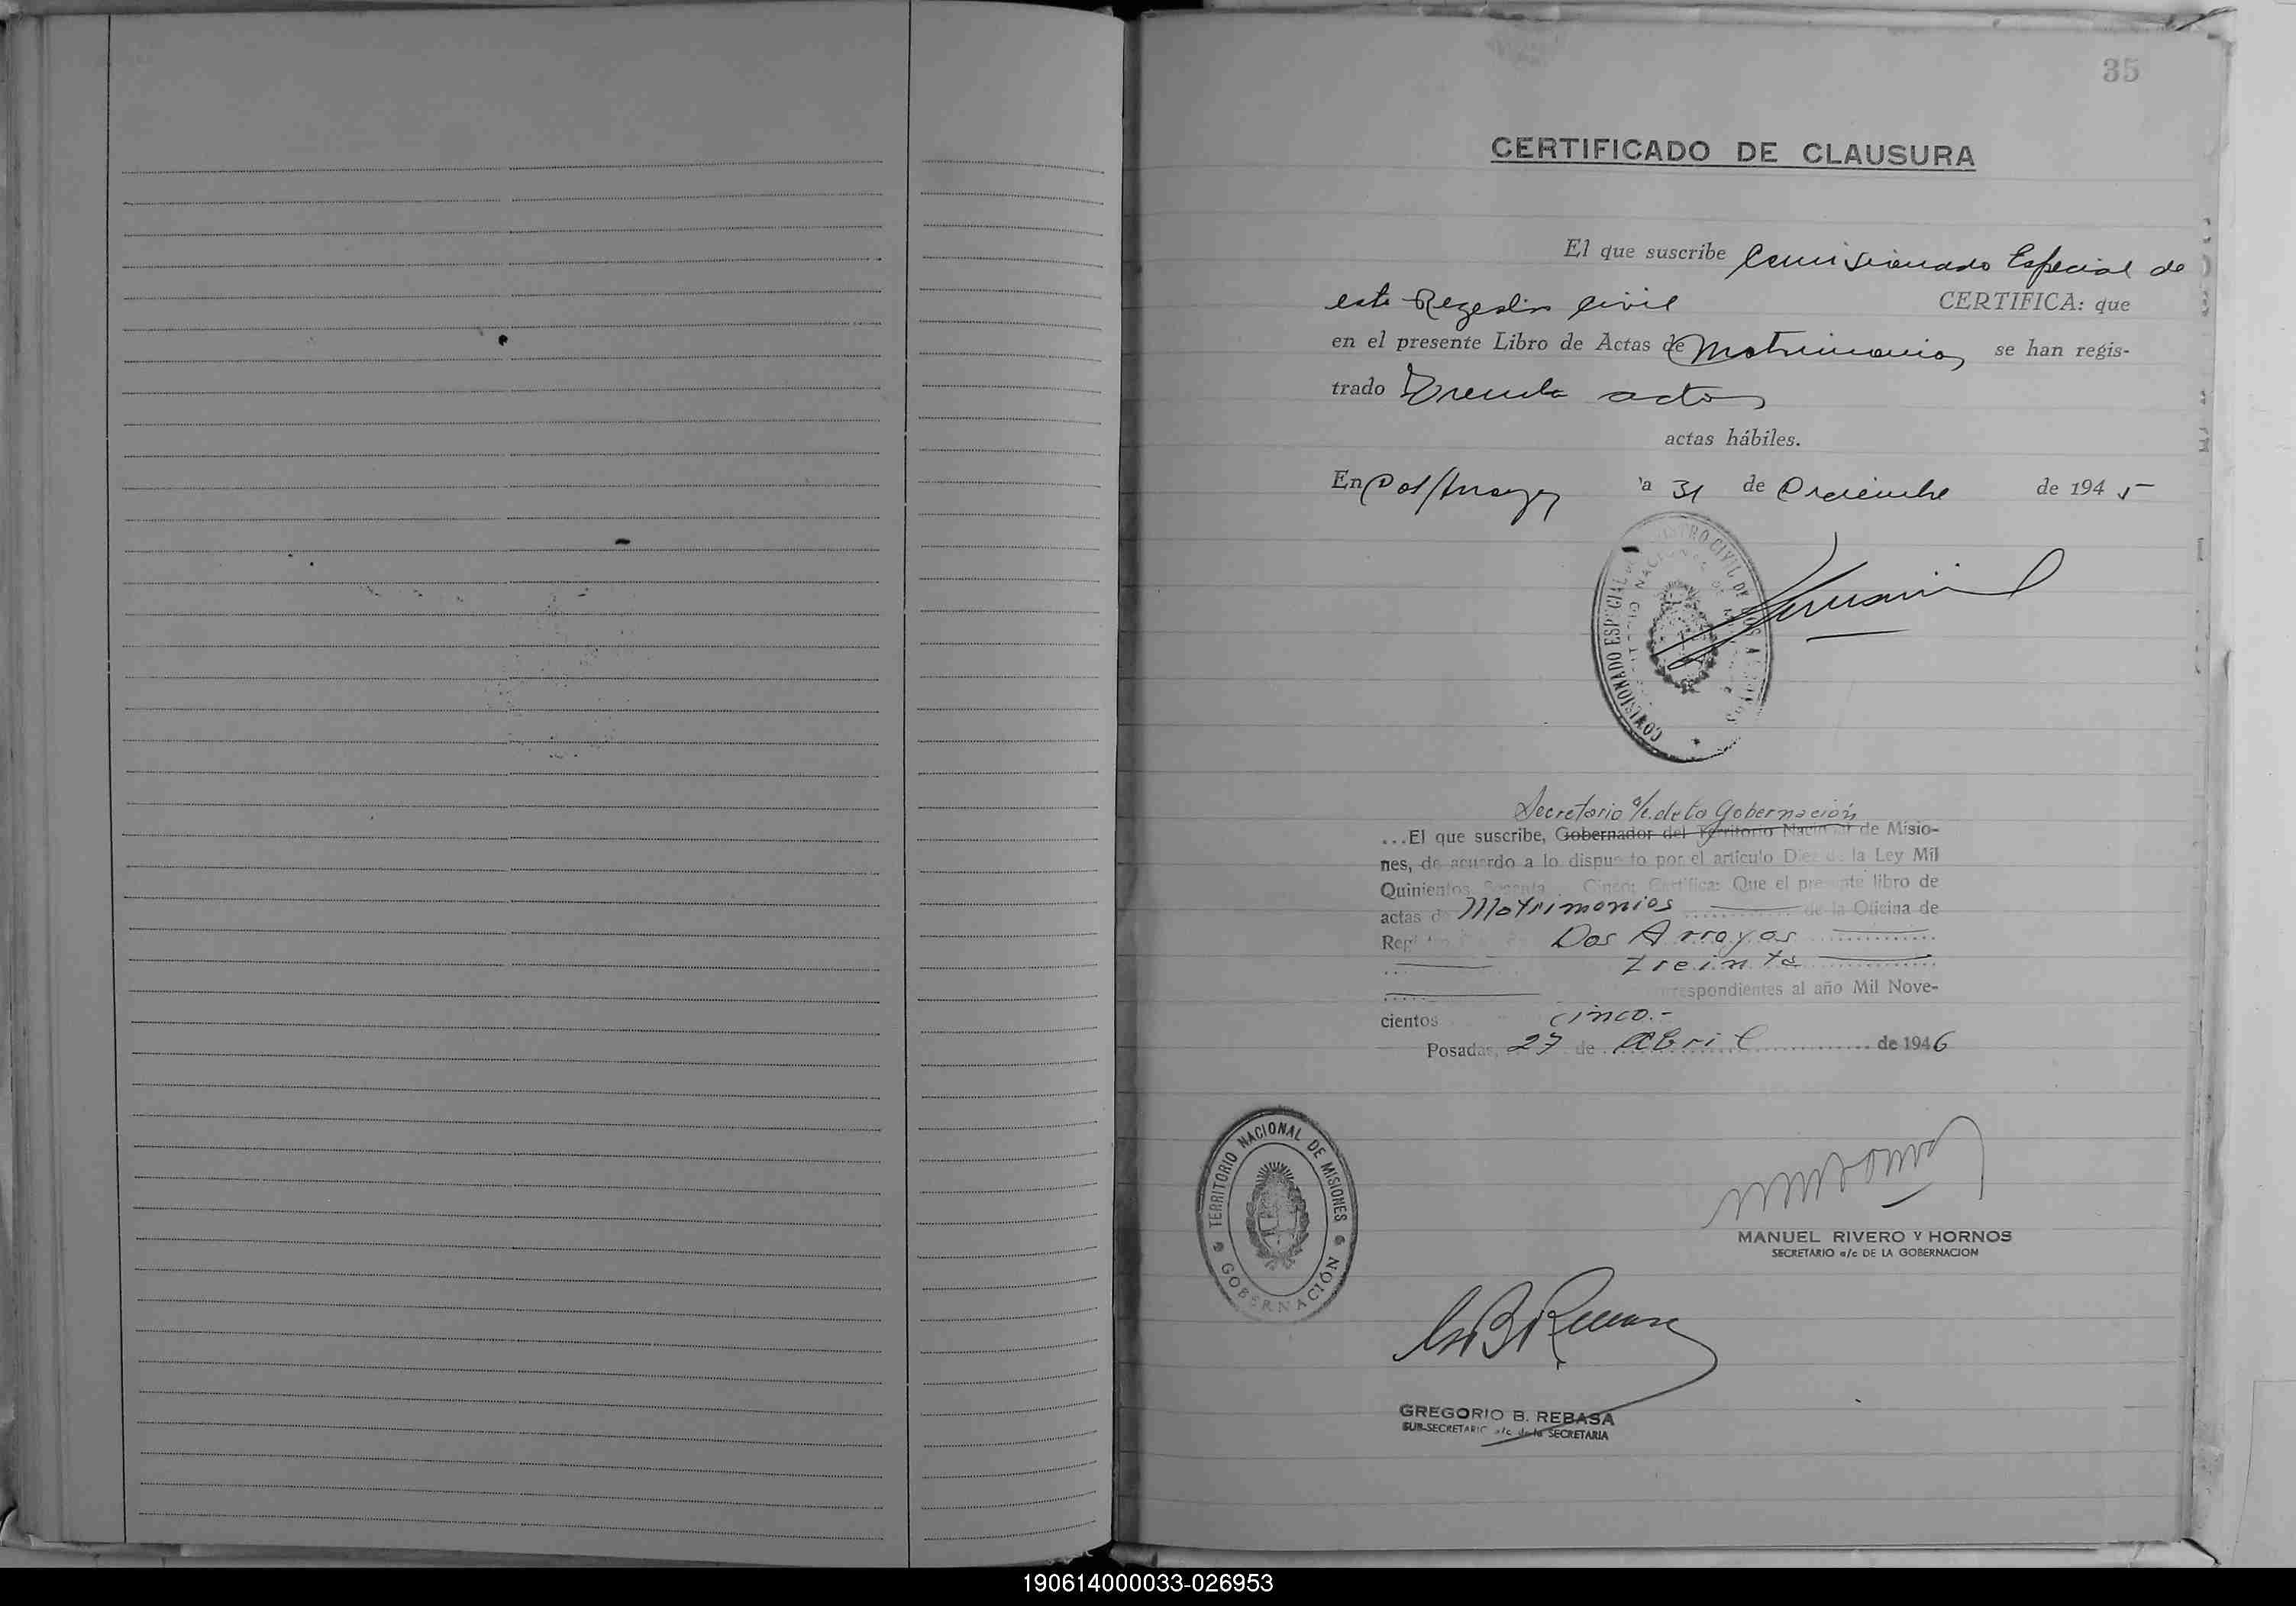 35
CERTIFICADO DE CLAUSURA
El que suscribe Comisionado Especial de
este Registro Civil CERTIFICA: que
en el presente Libro de Actas de Matrimonios se han regis-
trado Treinta actas
actas hábiles.
En Dos Arroyos a 31 de Diciembre de 1945
COMISIONADO ESPECIAL REGISTRO CIVIL DE DOS ARROYOS
Secretario a/c. de la Gobernación
...El que suscribe, Gobernador del Territorio Nacional de Misio-
nes, de acuerdo a lo dispuesto por el artículo Diez de la Ley Mil
Quinientos Sesenta Cinco: Certifica: Que el presente libro de
actas de Matrimonios de la Oficina de
Dos Arroyos
treinta
correspondientes al año Mil Nove-
cientos cinco.-
Posadas, 27 de Abril de 1946
TERRITORIO NACIONAL DE MISIONES
GOBERNACIÓN
MANUEL RIVERO Y HORNOS
SECRETARIO a/c DE LA GOBERNACION
GREGORIO B. REBASA
SUB-SECRETARIO a/c de la SECRETARIA
190614000033-026953